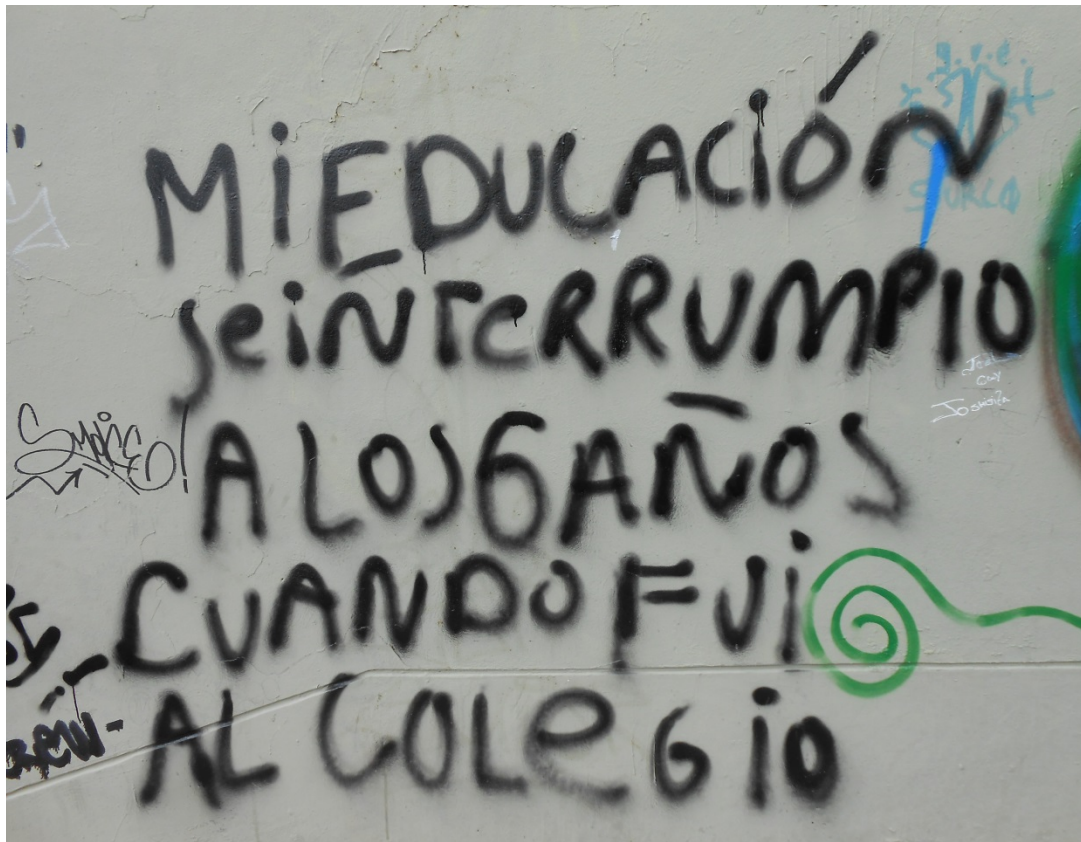 MI EDUCACIÓN
SE INTERRUMPIO
A LOS 6 AÑOS
CUANDO FUI
AL COLEGIO